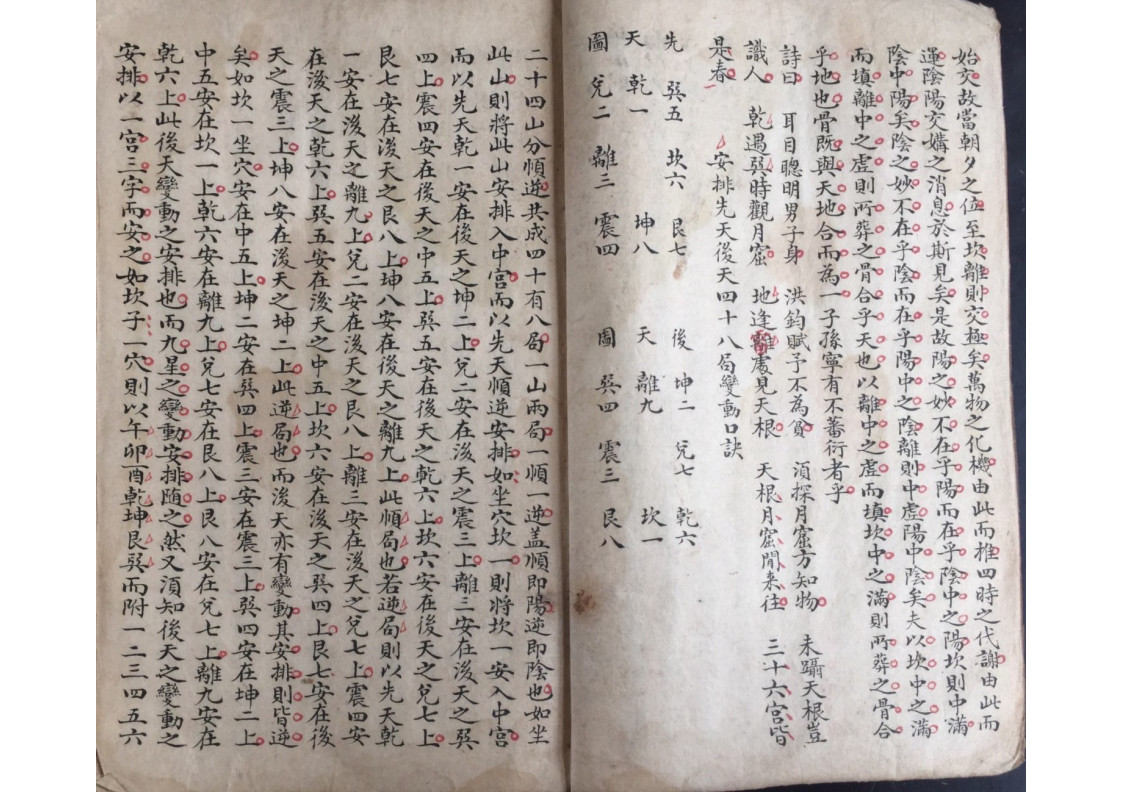 始交故當朝夕之位至坎離則交極矣萬物之化機由此而推四時之代謝由此而
運陰陽交媾之消息於斯見矣是故陽之妙不在乎陽而在乎陰中之陽坎則中滿
陰中陽矣陰之妙不在乎陰而在乎陽中之陰離則中虛陽中陰矣夫以坎中之滿
而填離中之虛則所葬之骨合乎天也以離中之虛而填坎中之滿則所葬之骨合
乎地也骨既與天地合而為一子孫寧有不蕃衍者乎
詩曰 耳目聰明男子身 洪鈞賦予不為貧 須探月窟方知物 未躡天根豈
識人 乾遇巽時觀月窟 地逢離處見天根 天根月窟閒来往 三十六宮皆
是春 安排先天後天四十八局變動口訣
先 巽五 坎六 艮七 後 坤二 兌七 乾六
天 乾一 坤八 天 離九 坎一
圖 兌二 離三 震四 圖 巽四 震三 艮八
二十四山分順逆共成四十有八局一山兩局一順一逆盖順即陽逆即陰也如坐
此山則將此山安排入中宮而以先天順逆安排如坐穴坎一則將坎一安入中宮
而以先天乾一安在後天之坤二上兌二安在後天之震三上離三安在後天之巽
四上震四安在後天之中五上巽五安在後天之乾六上坎六安在後天之兌七上
艮七安在後天之艮八上坤八安在後天之離九上此順局也若逆局則以先天乾
一安在後天之離九上兌二安在後天之艮八上離三安在後天之兌七上震四安
在後天之乾六上巽五安在後天之中五上坎六安在後天之巽四上艮七安在後
天之震三上坤八安在後天之坤二上此逆局也而後天亦有變動其安排則皆逆
矣如坎一坐穴安在中五上坤二安在巽四上震三安在震三上巽四安在坤二上
中五安在坎一上乾六安在離九上兌七安在艮八上艮八安在兌七上離九安在
乾六上此後天變動之安排也而九星之變動安排随之然又須知後天之變動之
安排以一宮三字而安之如坎子一穴則以午卯酉乾坤艮巽而附一二三四五六